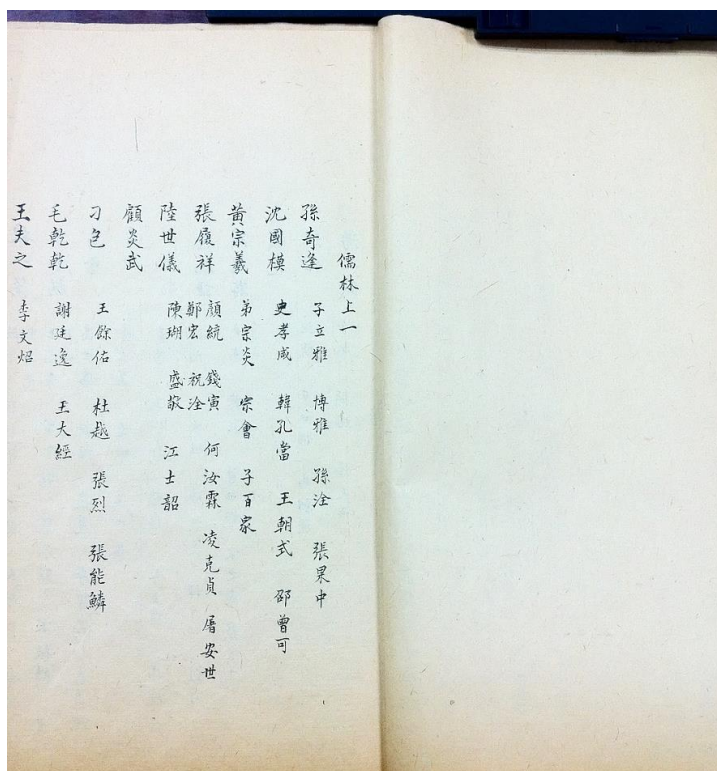 儒林上一
孫奇逢 子立雅 博雅 孫淦 張果中
沈國模 史孝咸 韓孔當 王朝式 邵曾可
黃宗羲 弟宗炎 宗會 子百家
張履祥 顏統 錢寅 何汝霖 凌克貞 屠安世
鄭宏 祝淦
陸世儀 陳瑚 盛敬 江士韶
顧炎武
刁包 王餘佑 杜越 張烈 張能鱗
毛乾乾 謝廷逸 王大經
王夫之 李文炤